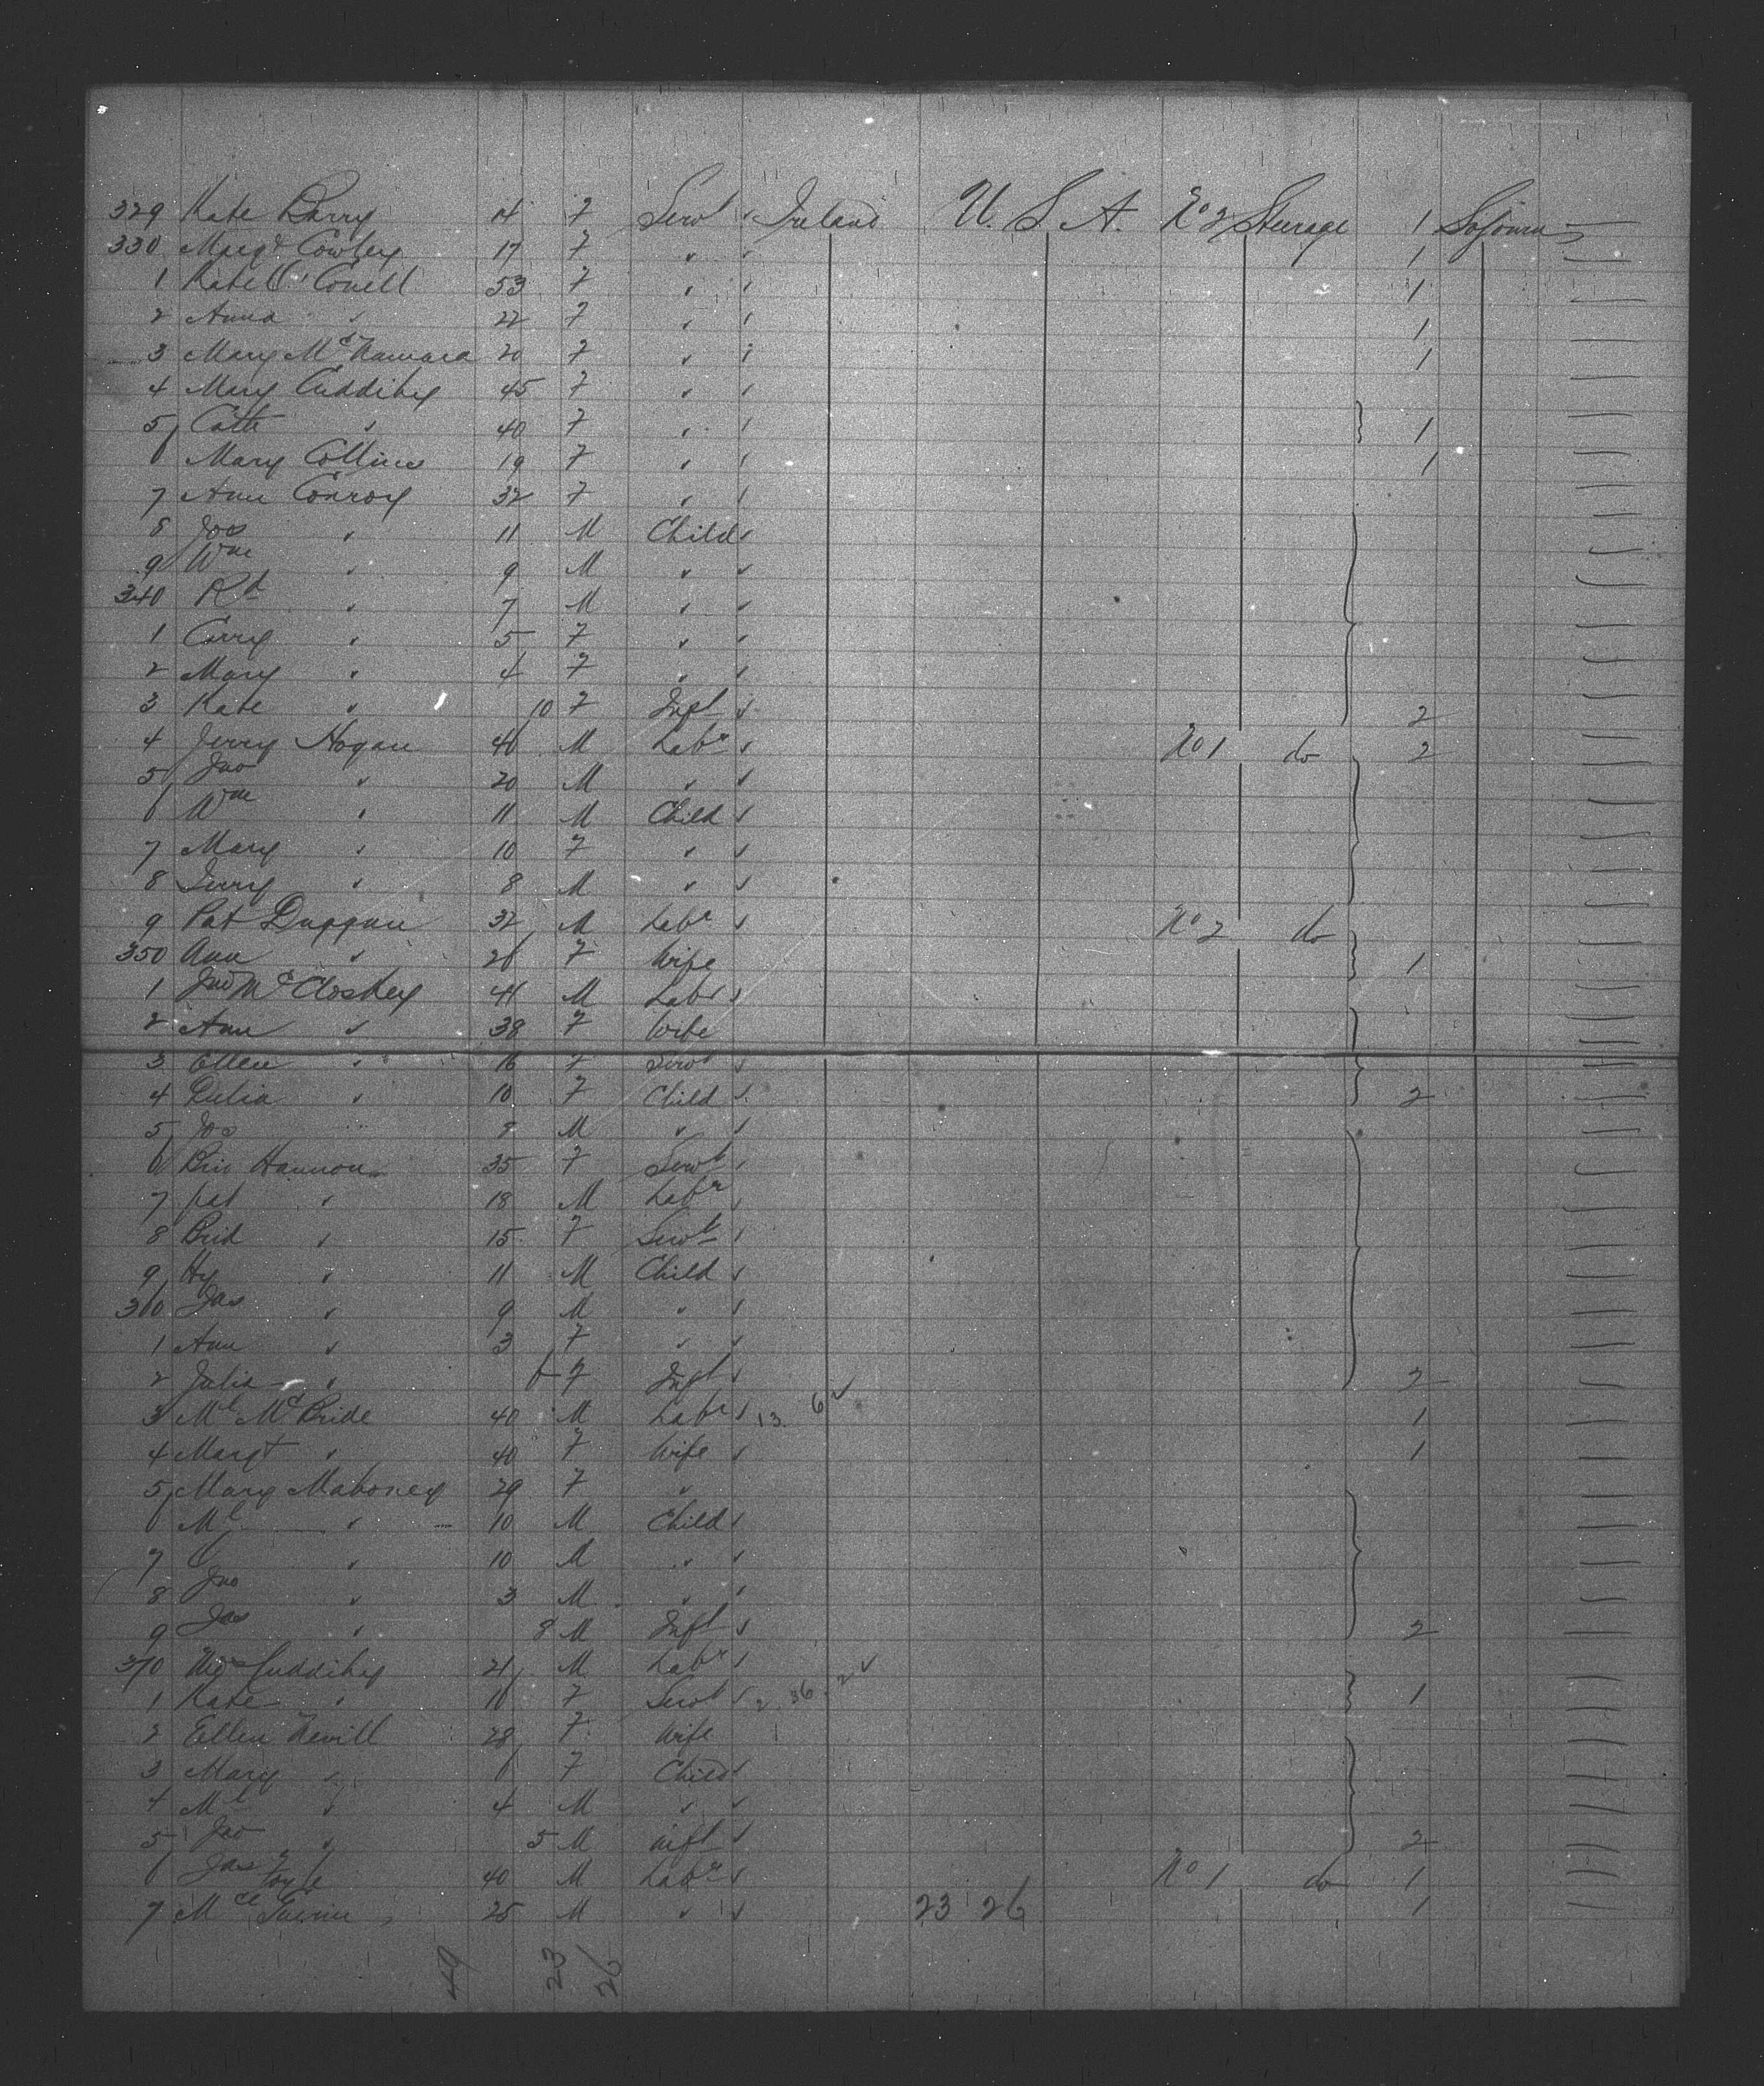 329 Kate Barry F Servt " Ireland U. S. A. No 2 Steerage 1 Sojourn —
330 Margt Cowhey 17 F " " 1 —
1 Kate O'Conell 53 F " " 1 —
2 Anna " 22 F " " 1 —
3 Mary McNamara 20 F " " 1 —
4 Mary Cuddihy 45 F " " —
5 Cath " 40 F " " 1 —
6 Mary Collins 19 F " " 1 —
7 Ann Conroy 32 F " " —
8 Jos " 11 M Child " —
9 Wm " 9 M " " —
340 Rd " 7 M " " —
1 " 5 F " " —
2 Mary " 4 F " " —
3 Kate " 10 F Inft " 2 —
4 Jerry Hogan 46 M Labr " No 1 do 2 —
5 Jno " 20 M " " —
6 Wm " 11 M Child " —
7 Mary " 10 F " " —
8 Jerry " 8 M " " —
9 Pat Duggan 32 M Labr " No 2 do —
350 Ann " 26 F Wife 1 —
1 Jno McCloskey 41 M Labr " —
2 Ann " 38 F Wife —
3 Ellen " 16 F Servt " —
4 Delia " 10 F Child " 2 —
5 Jos " 8 M " " —
6 Brid Hannon 35 F Servt " —
7 Pat " 18 M Labr " —
8 Brid " 15 F Servt " —
9 Hy " 11 M Child " —
360 Jas " 9 M " " —
1 Ann " 3 F " " —
2 Julia " 6 F Inft " 2 —
3 Ml McBride 40 M Labr " 13 6 ✓ 1 —
4 Margt " 40 F Wife " 1 —
5 Mary Mahoney 29 F " —
6 Ml " 10 M Child " —
7 " 10 M " " —
8 Jno " 3 M " " —
9 Jas " 8 M Inft " 2 —
370 Thos Cuddihy 21 M Labr " —
1 Kate " 16 F Servt " 2 36 2 ✓ 1 —
2 Ellen Nevill 28 F Wife —
3 Mary " 6 F Child " —
4 Ml " 4 M " " —
5 Jno " 5 M Inft " 2 —
6 Jas Foyle 40 M Labr " No 1 do 1 —
7 25 M " " 23 26 1 —
49 23 26